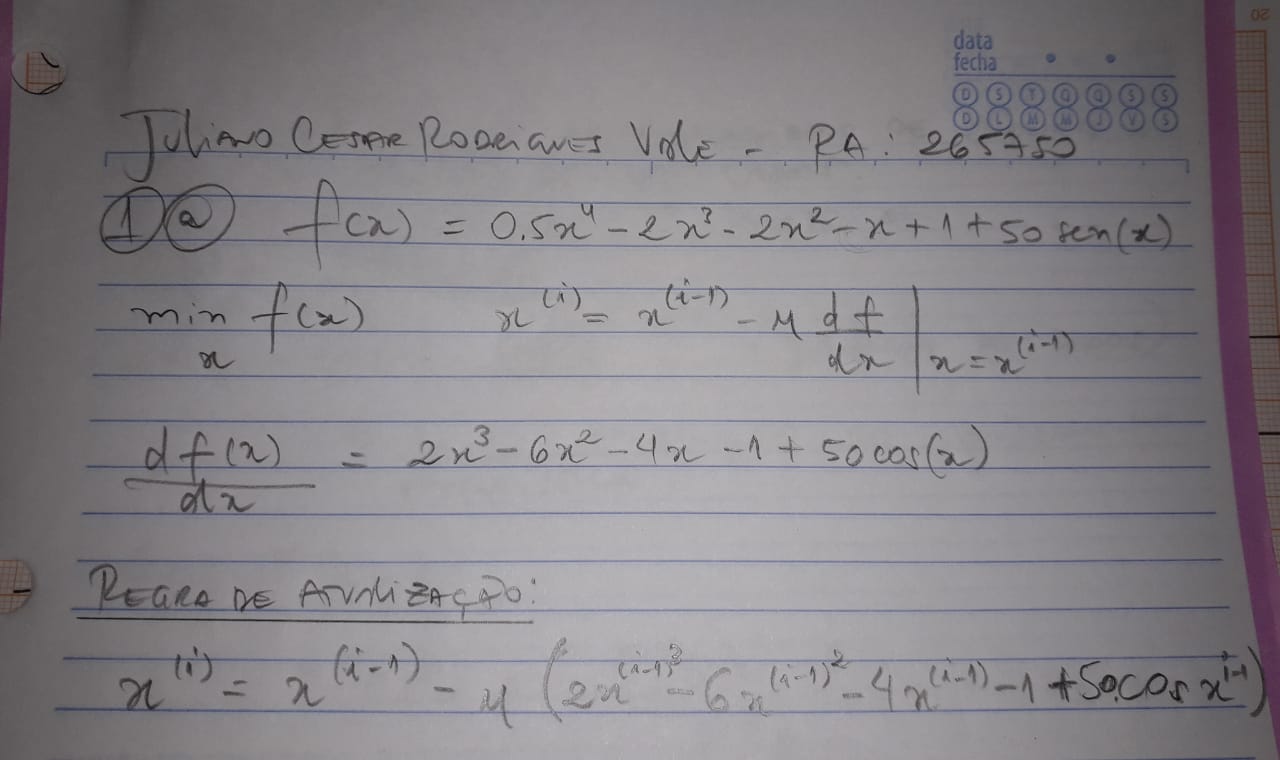 20
data
fecha
D S T Q Q S S
D L M M J V S
Juliano Cesar Rodrigues Vole - RA: 265750
1 a f(x) = 0,5x⁴ - 2x³ - 2x² - x + 1 + 50 sen(x)
min f(x) x⁽ⁱ⁾ = x⁽ⁱ⁻¹⁾ - μ df/dx | x = x⁽ⁱ⁻¹⁾
x
df(x)/dx = 2x³ - 6x² - 4x - 1 + 50 cos(x)
REGRA DE ATUALIZAÇÃO:
x⁽ⁱ⁾ = x⁽ⁱ⁻¹⁾ - μ (2x⁽ⁱ⁻¹⁾³ - 6x⁽ⁱ⁻¹⁾² - 4x⁽ⁱ⁻¹⁾ - 1 + 50.cos xⁱ⁻¹)